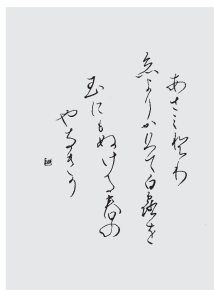 あさみとり
糸よりかけて白露を
玉にもぬける春の
やなきか